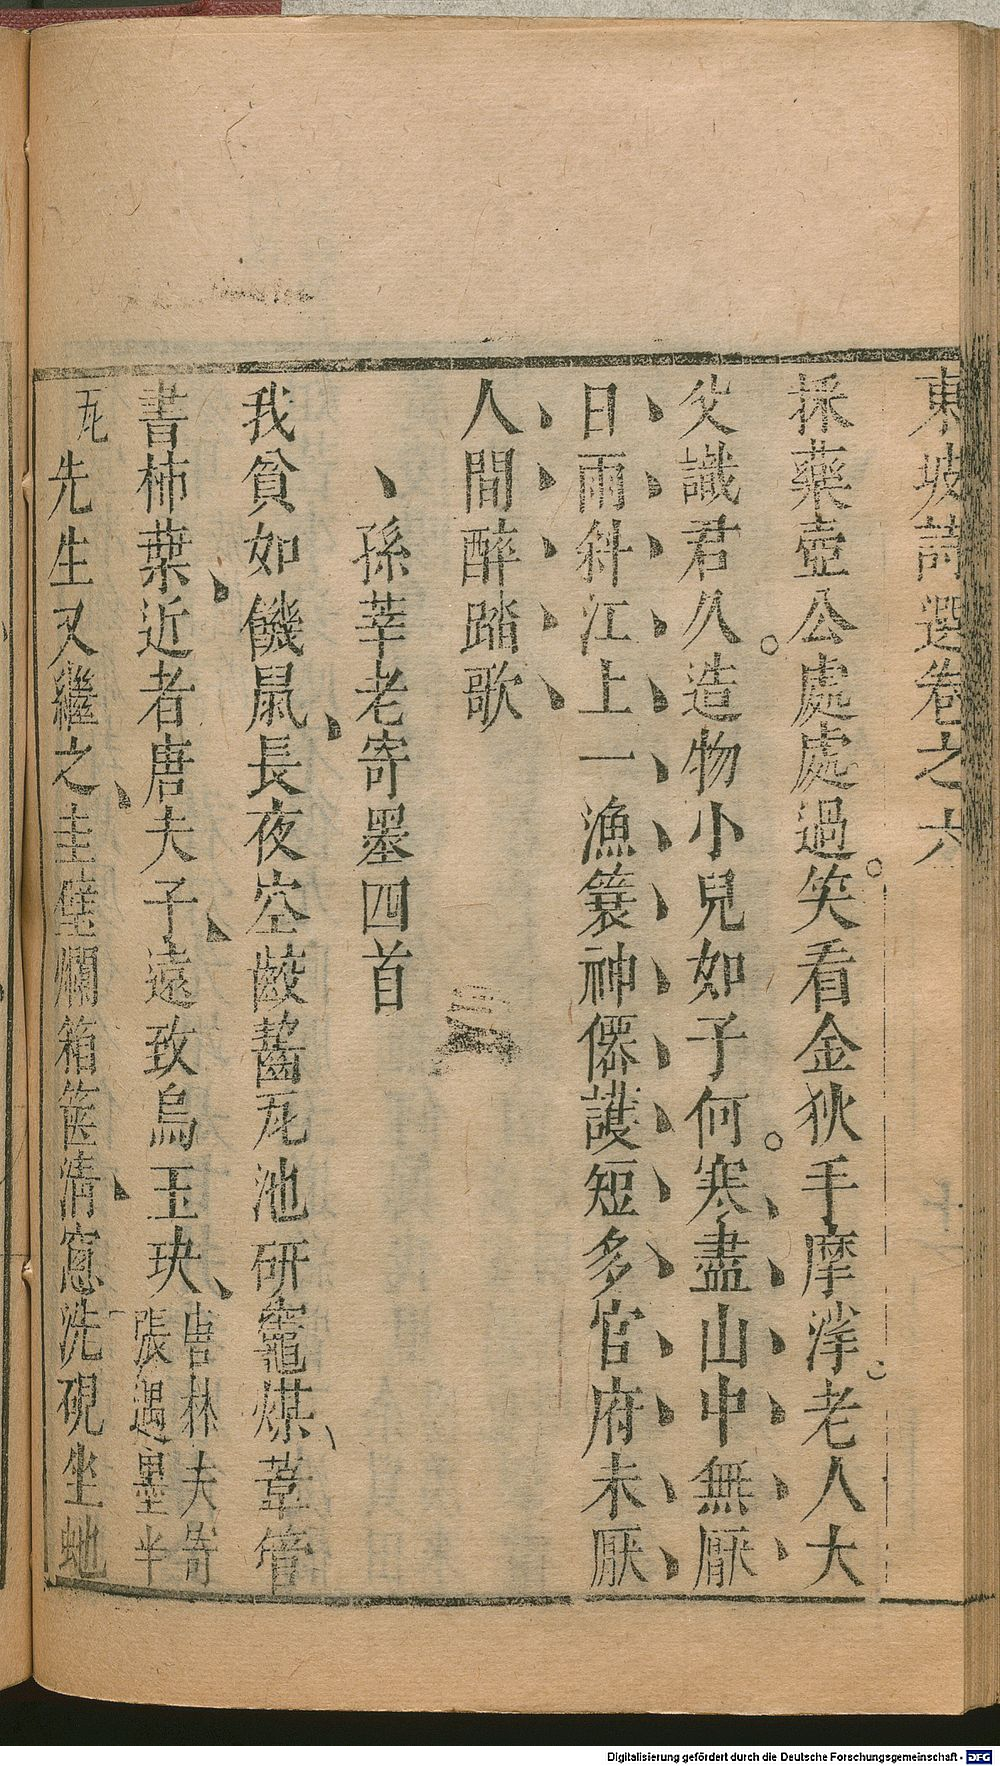 東坡詩選卷之六
採藥壺公處處過笑看金狄手摩挲老人大
父識君久造物小兒如子何寒盡山中無厤
日雨斜江上一漁簑神僊護短多官府未厭
人間醉踏歌
孫莘老寄墨四首
我貧如饑鼠長夜空齩齧瓦池研竈煤葦管
書柿葉近者唐夫子遠致烏玉玦唐林夫寄
張遇墨半
瓦先生又繼之圭璧爛箱篋清窻洗硯坐虵
Digitalisierung gefördert durch die Deutsche Forschungsgemeinschaft - DFG